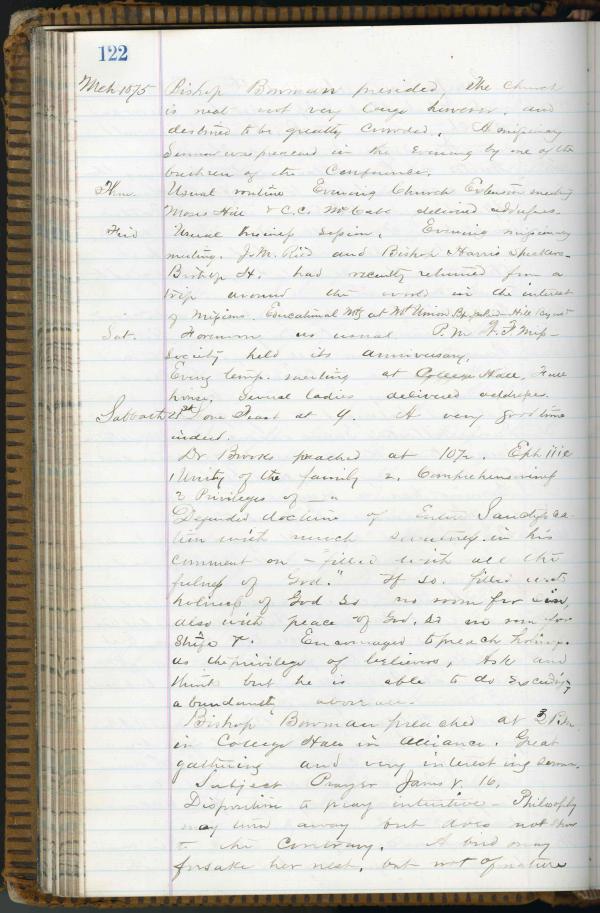 122
Mch 1875 Bishop Bowman presided, The church
is neat not very large however, and
destined to be greatly crowded. A missionary
Sermon was preached in the Evening by one of the
brethren of the Conference.
Thu. Usual routine Evening Church Extension meeting
Moses Hill & C.C. McCabe delivered addresses.
Frid Usual business session. Evening missionary
meeting. J.M. Reid and Bishop Harris speakers.
Bishop H. had recently returned from a
trip around the world in the interest
of missions. Educational Mtg at Mt Union
Sat. Forenoon as usual P.M. W.F. Miss-
Society held its anniversary,
Eving temp. meeting at College Hall, Full
house, Several ladies delivered addresses.
Sabbath Love Feast at 9. A very good time
indeed.
Dr Brooks preached at 10½. Eph iii
1 Unity of the family 2. Comprehensiveness
2 Privileges of — "
Defended doctrine of Entire Sanctifica-
tion with much in his
comment on "filled with all the
fulness of God." If so, filled with
holiness of God so no room for sin,
also with peace of God, so no room for
strife &. Encouraged to preach holiness
as the privilege of believers, Ask and
think but he is able to do exceeding
abundantly above all.
Bishop Bowman preached at 3 P.M.
in College Hall in Alliance. Great
gathering and very interesting sermon.
Subject Prayer James V. 16.
Disposition to pray intuitive - Philosophy
may turn away but does not
to the contrary. A bird may
forsake her nest, but not of nature